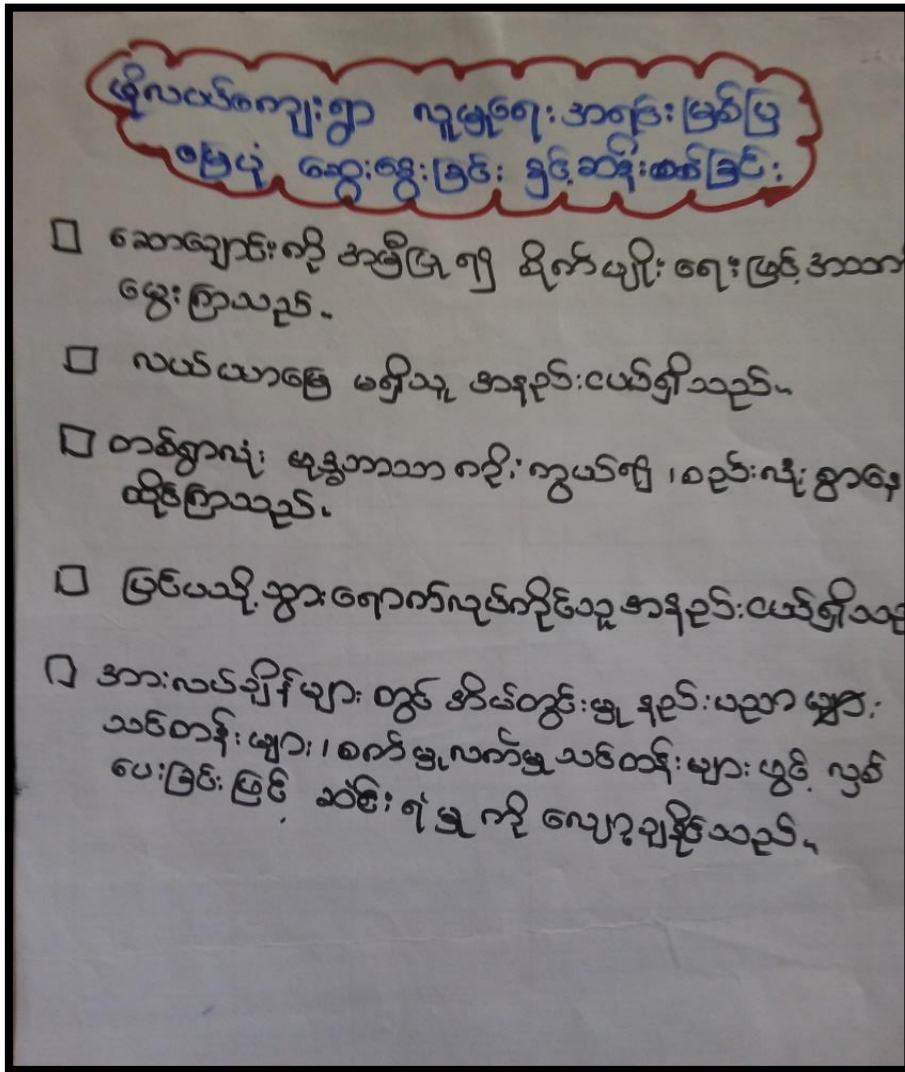 ဖိုလယ်ကျေးရွာ လူမှုရေး အရင်းမြစ်ပြ
မြေပုံ ဆွေးနွေးခြင်း နှင့်ဆန်းစစ်ခြင်း
ဆောချောင်းကို အမှီပြု၍ စိုက်ပျိုး ရေးဖြင့် အသက်
မွေးကြသည်။
လယ်ယာမြေ မရှိသူ အနည်းငယ်ရှိသည်။
တစ်ရွာလုံး ဗုဒ္ဓဘာသာ ကိုးကွယ်၍ ၊ စည်းလုံး စွာနေ
ထိုင်ကြသည်။
ပြင်ပသို့ သွားရောက်လုပ်ကိုင်သူ အနည်းငယ်ရှိသည်
အားလပ်ချိန်များ တွင် အိမ်တွင်းမှု နည်းပညာ များ
သင်တန်းများ ၊ စက်မှုလက်မှု သင်တန်းများ ဖွင့် လှစ်
ပေးခြင်း ဖြင့် ဆင်းရဲမှု ကို လျော့ချနိုင်သည်။